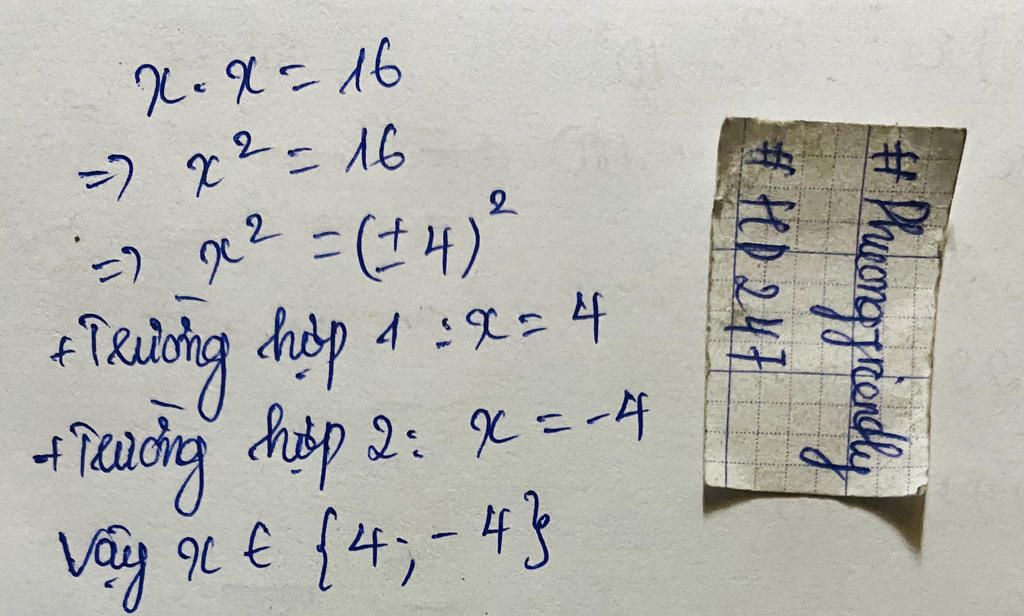 x . x = 16
=> x² = 16
=> x² = (± 4)²
+ Trường hợp 1 : x = 4
+ Trường hợp 2 : x = -4
Vậy x ∈ {4; -4}
# Phuongfriendly
# HD247